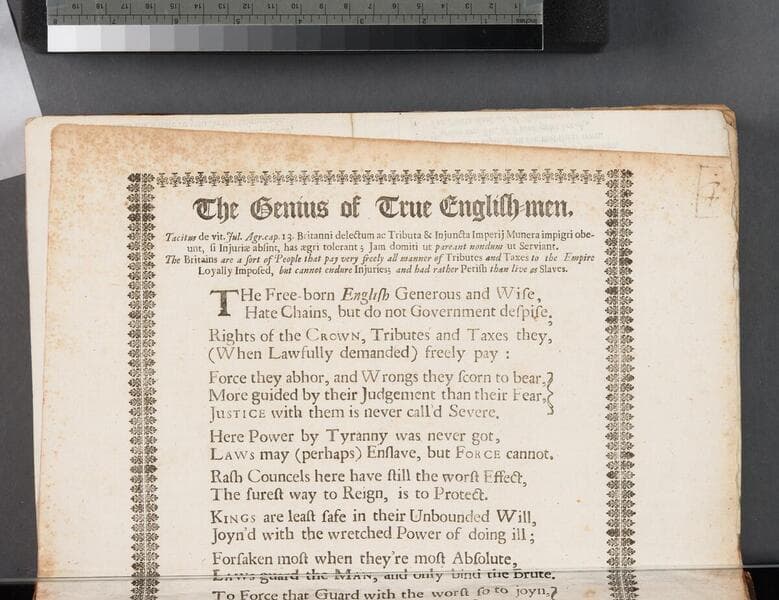 The Genius of True Engliſh-men.
Tacitus de vit. Jul. Agr. cap. 13. Britanni delectum ac Tributa & Injuncta Imperij Munera impigri obe-
unt, ſi Injuriæ abſint, has ægri tolerant; Jam domiti ut pareant nondum ut Serviant.
The Britains are a ſort of People that pay very freely all manner of Tributes and Taxes to the Empire
Loyally Impoſed, but cannot endure Injuries; and had rather Periſh than live as Slaves.
THe Free-born Engliſh Generous and Wiſe,
Hate Chains, but do not Government deſpiſe;
Rights of the CROWN, Tributes and Taxes they,
(When Lawfully demanded) freely pay:
Force they abhor, and Wrongs they ſcorn to bear,
More guided by their Judgement than their Fear,
JUSTICE with them is never call'd Severe.
Here Power by Tyranny was never got,
LAWS may (perhaps) Enſlave, but FORCE cannot.
Raſh Councels here have ſtill the worſt Effect,
The ſureſt way to Reign, is to Protect.
KINGS are leaſt ſafe in their Unbounded Will,
Joyn'd with the wretched Power of doing ill;
Forſaken moſt when they're moſt Abſolute,
LAWS guard the MAN, and only bind the Brute.
To Force that Guard with the worſt fo to joyn,